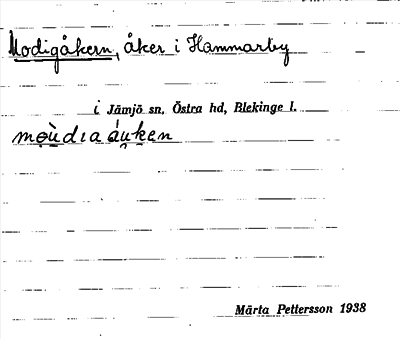 Modigåkern, åker i Hammarby
i Jämjö sn, Östra hd, Blekinge l.
moùdıa áu̯ken
Märta Pettersson 1938